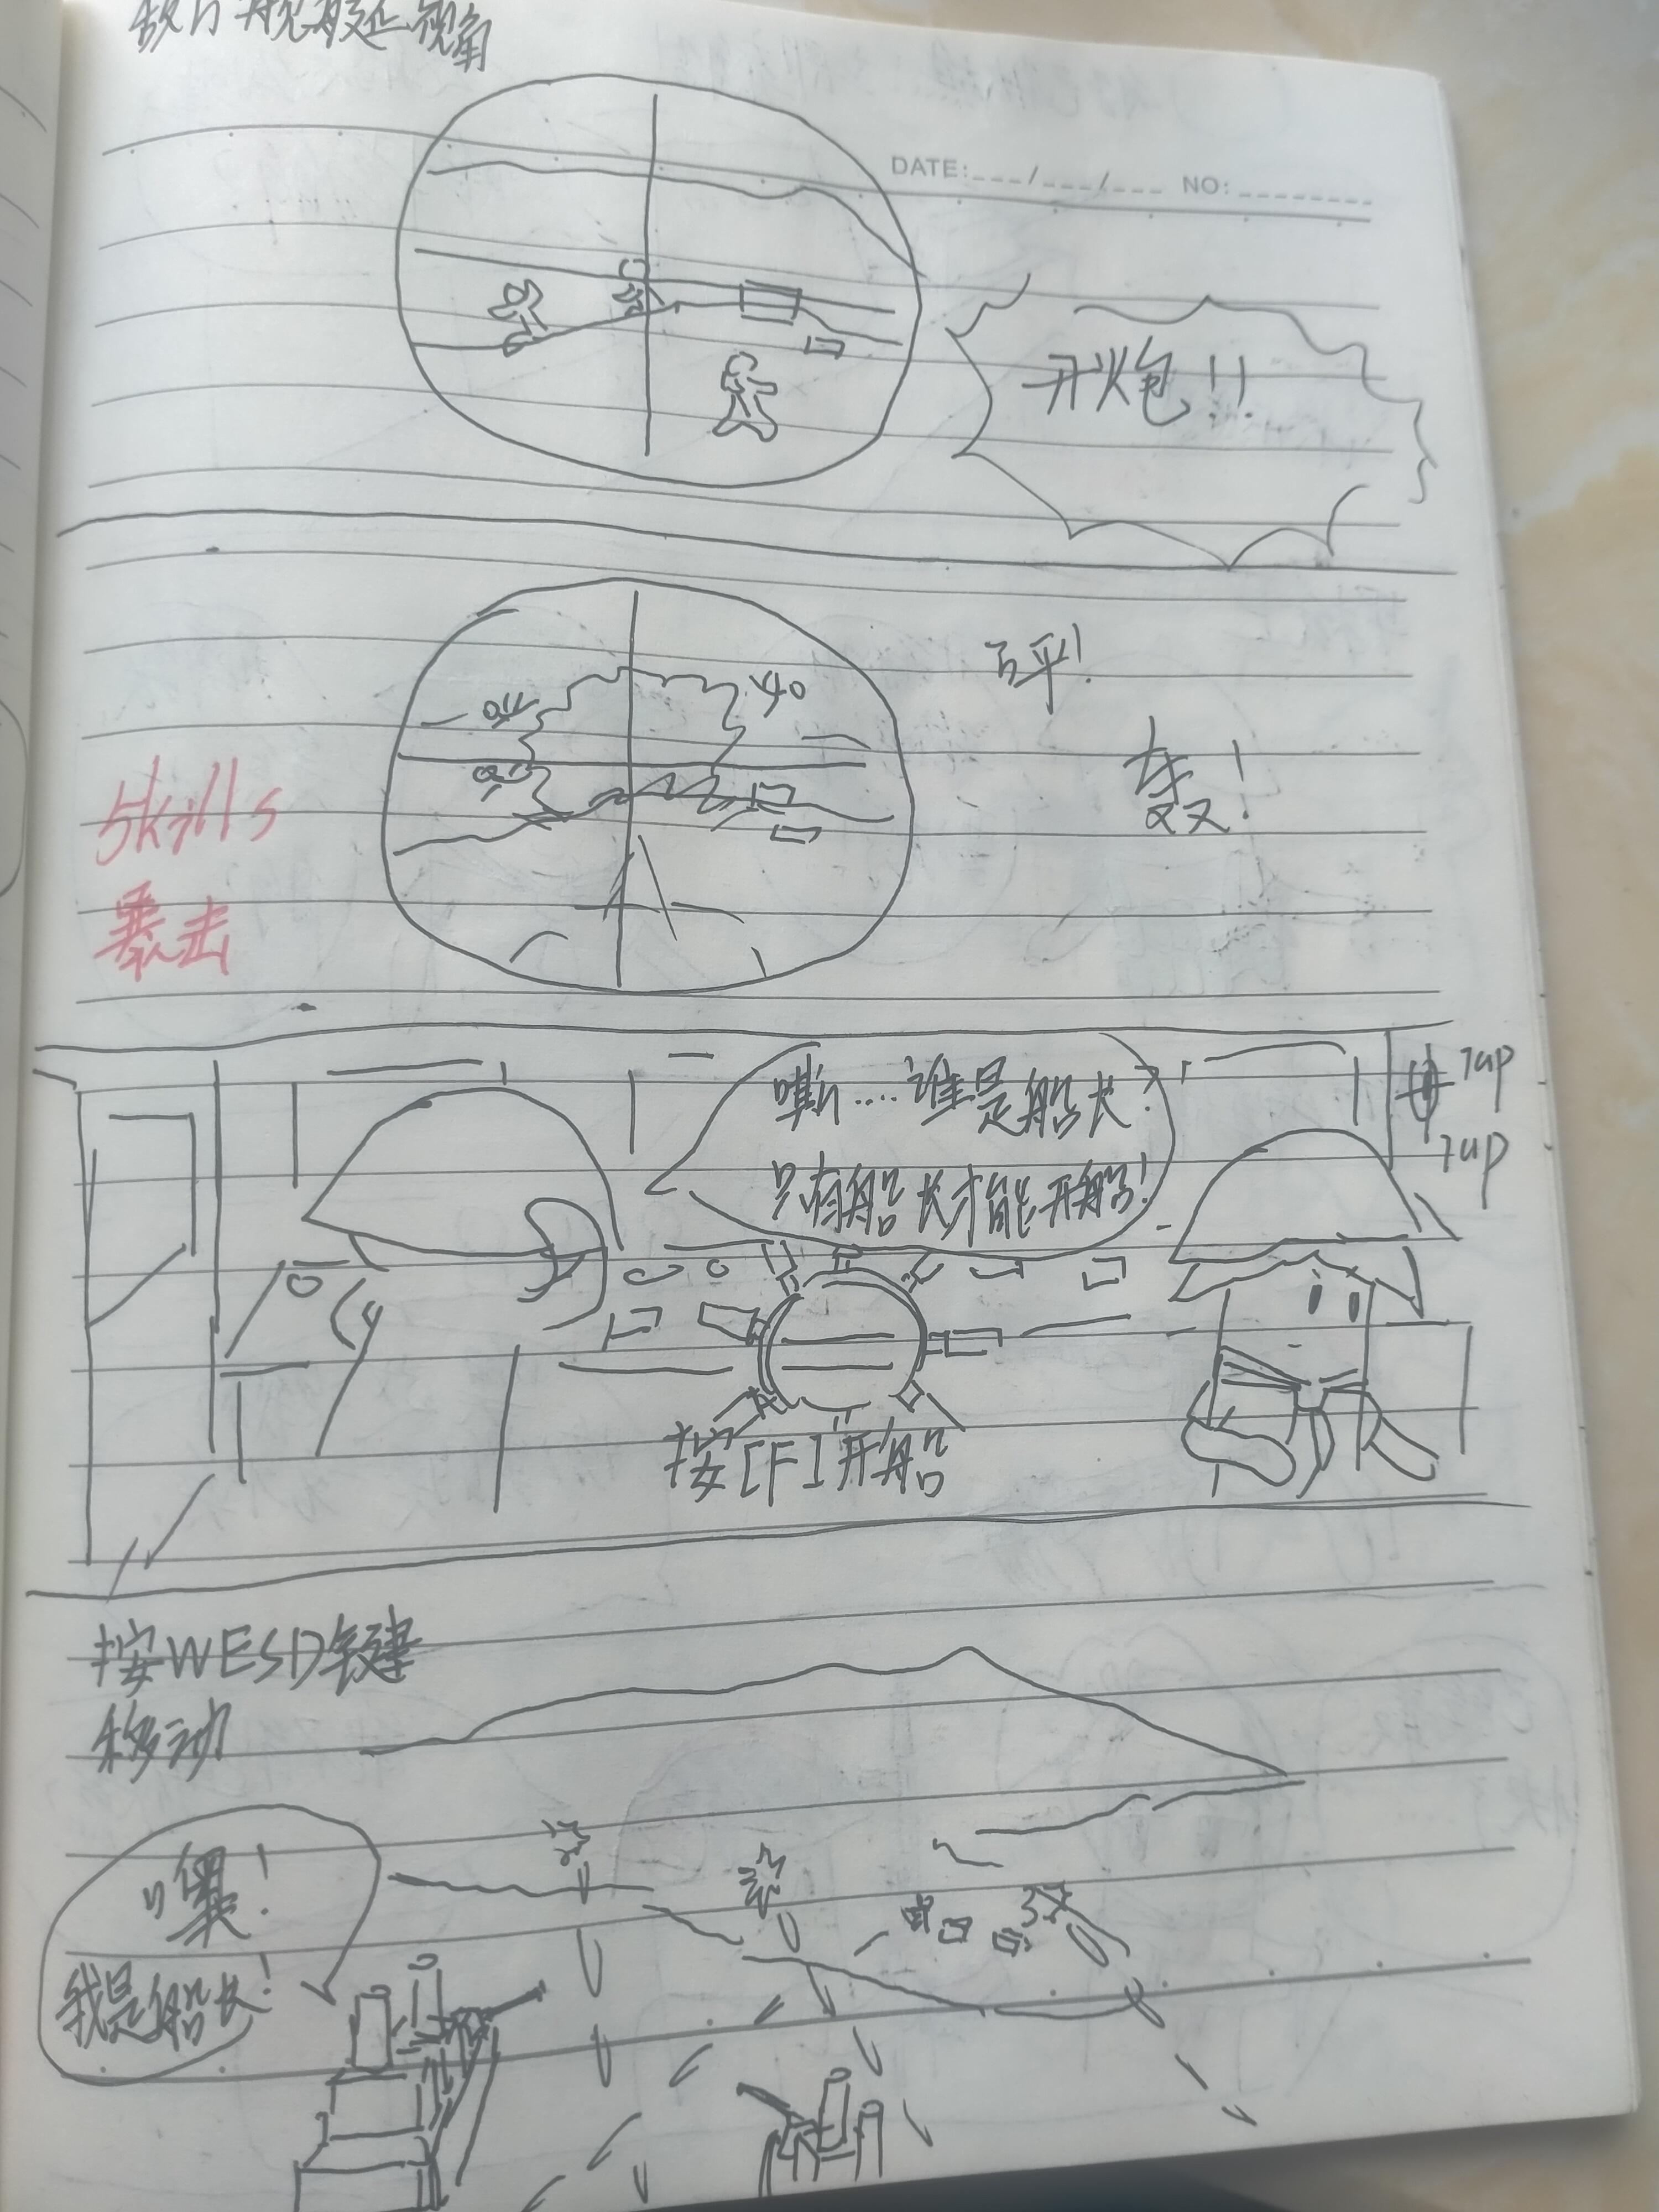 敌方舰艇视角
DATE:___/___/___ NO:________
开炮!!
砰!
轰!
skills
暴击
嘶....谁是船长?
只有船长才能开船!
按[F]开船
按WESD键
移动
嘿!
我是船长!